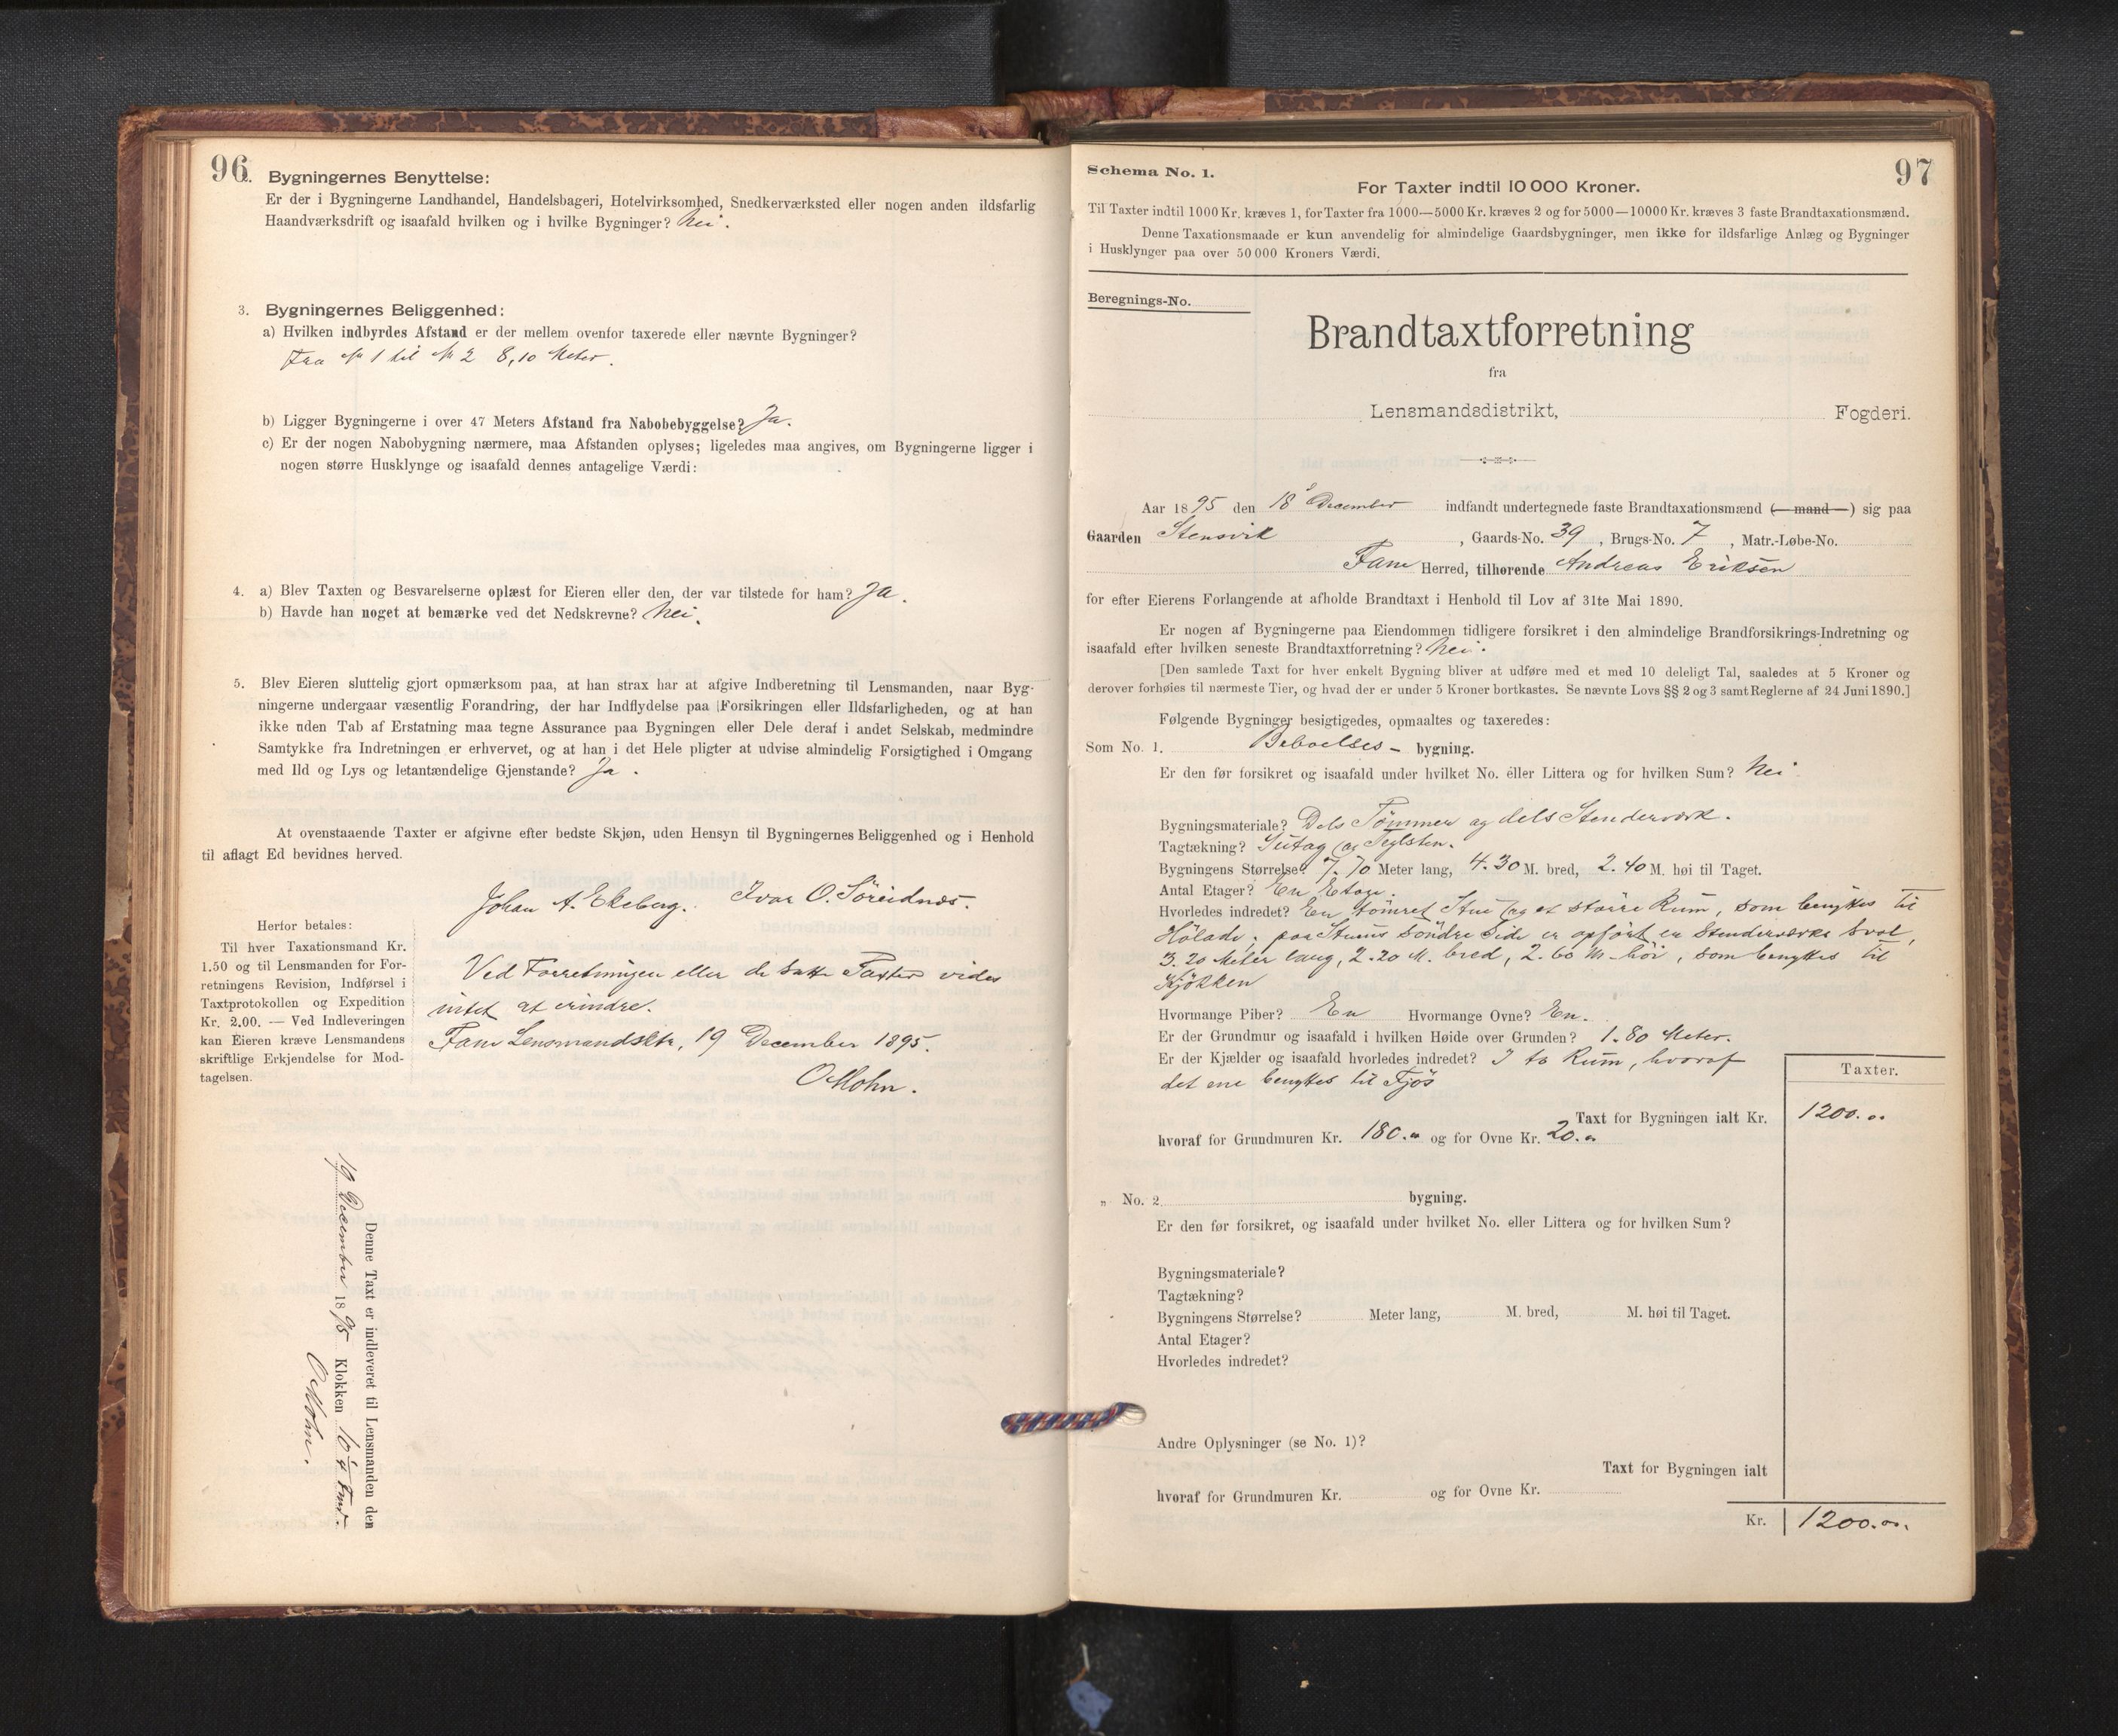 96.
Bygningernes Benyttelse:
Er der i Bygningerne Landhandel, Handelsbageri, Hotelvirksomhed, Snedkerværksted eller nogen anden ildsfarlig
Haandværksdrift og isaafald hvilken og i hvilke Bygninger? Nei.
3. Bygningernes Beliggenhed:
a) Hvilken indbyrdes Afstand er der mellem ovenfor taxerede eller nævnte Bygninger?
Fra № 1 til № 2 8,10 Meter.
b) Ligger Bygningerne i over 47 Meters Afstand fra Nabobebyggelse? Ja.
c) Er der nogen Nabobygning nærmere, maa Afstanden oplyses; ligeledes maa angives, om Bygningerne ligger i
nogen større Husklynge og isaafald dennes antagelige Værdi:
4. a) Blev Taxten og Besvarelserne oplæst for Eieren eller den, der var tilstede for ham? Ja.
b) Havde han noget at bemærke ved det Nedskrevne? Nei.
5. Blev Eieren sluttelig gjort opmærksom paa, at han strax har at afgive Indberetning til Lensmanden, naar Byg-
ningerne undergaar væsentlig Forandring, der har Indflydelse paa Forsikringen eller Ildsfarligheden, og at han
ikke uden Tab af Erstatning maa tegne Assurance paa Bygningen eller Dele deraf i andet Selskab, medmindre
Samtykke fra Indretningen er erhvervet, og at han i det Hele pligter at udvise almindelig Forsigtighed i Omgang
med Ild og Lys og letantændelige Gjenstande? Ja.
At ovenstaaende Taxter er afgivne efter bedste Skjøn, uden Hensyn til Bygningernes Beliggenhed og i Henhold
til aflagt Ed bevidnes herved.
Johan A. Ekeberg. Ivar O. Söreidnes.
Herfor betales:
Til hver Taxationsmand Kr.
1.50 og til Lensmanden for For-
retningens Revision, Indførsel i
Taxtprotokollen og Expedition
Kr. 2.00. — Ved Indleveringen
kan Eieren kræve Lensmandens
skriftlige Erkjendelse for Mod-
tagelsen.
Ved Forretningen eller de satte Taxter vides
intet at erindre.
Fane Lensmandsktr, 19 December 1895.
O Mohn.
Denne Taxt er indleveret til Lensmanden den
19 December 1895 Klokken 10 ¼ Fmd.
O Mohn.
97
Schema No. 1.
For Taxter indtil 10 000 Kroner.
Til Taxter indtil 1000 Kr. kræves 1, for Taxter fra 1000—5000 Kr. kræves 2 og for 5000—10000 Kr. kræves 3 faste Brandtaxationsmænd.
Denne Taxationsmaade er kun anvendelig for almindelige Gaardsbygninger, men ikke for ildsfarlige Anlæg og Bygninger
i Husklynger paa over 50 000 Kroners Værdi.
Beregnings-No.
Brandtaxtforretning
fra
Lensmandsdistrikt, Fogderi.
Aar 1895 den 18 December indfandt undertegnede faste Brandtaxationsmænd (mand) sig paa
Gaarden Stensvik, Gaards-No. 39, Brugs-No. 7, Matr.-Løbe-No.
Fane Herred, tilhørende Andreas Eriksen
for efter Eierens Forlangende at afholde Brandtaxt i Henhold til Lov af 31te Mai 1890.
Er nogen af Bygningerne paa Eiendommen tidligere forsikret i den almindelige Brandforsikrings-Indretning og
isaafald efter hvilken seneste Brandtaxtforretning? Nei.
[Den samlede Taxt for hver enkelt Bygning bliver at udføre med et med 10 deleligt Tal, saaledes at 5 Kroner og
derover forhøies til nærmeste Tier, og hvad der er under 5 Kroner bortkastes. Se nævnte Lovs §§ 2 og 3 samt Reglerne af 24 Juni 1890.]
Følgende Bygninger besigtigedes, opmaaltes og taxeredes:
Som No. 1. Beboelses- bygning.
Er den før forsikret og isaafald under hvilket No. eller Littera og for hvilken Sum? Nei
Bygningsmateriale? Dels Tömmer og dels Stenderværk.
Tagtækning? og Teglsten.
Bygningens Størrelse? 7.70 Meter lang, 4.30 M. bred, 2.40 M. høi til Taget.
Antal Etager? En Etage.
Hvorledes indredet? En tömret Stue og et större Rum, som benyttes til
Hölade; paa Stuens söndre Side er opfört en Stenderværks Sval,
3.20 Meter lang, 2.20 M. bred, 2.60 M. höi, som benyttes til
Kjökken
Hvormange Piber? En Hvormange Ovne? En.
Er der Grundmur og isaafald i hvilken Høide over Grunden? 1.80 Meter.
Er der Kjælder og isaafald hvorledes indredet? I to Rum, hvoraf
det ene benyttes til Fjös
Taxter.
Taxt for Bygningen ialt Kr. 1200.00
hvoraf for Grundmuren Kr. 180.00 og for Ovne Kr. 20.00
„ No. 2 bygning.
Er den før forsikret, og isaafald under hvilket No. eller Littera og for hvilken Sum?
Bygningsmateriale?
Tagtækning?
Bygningens Størrelse? Meter lang, M. bred, M. høi til Taget.
Antal Etager?
Hvorledes indredet?
Andre Oplysninger (se No. 1)?
Taxt for Bygningen ialt
hvoraf for Grundmuren Kr. og for Ovne Kr.
Kr. 1200.00.